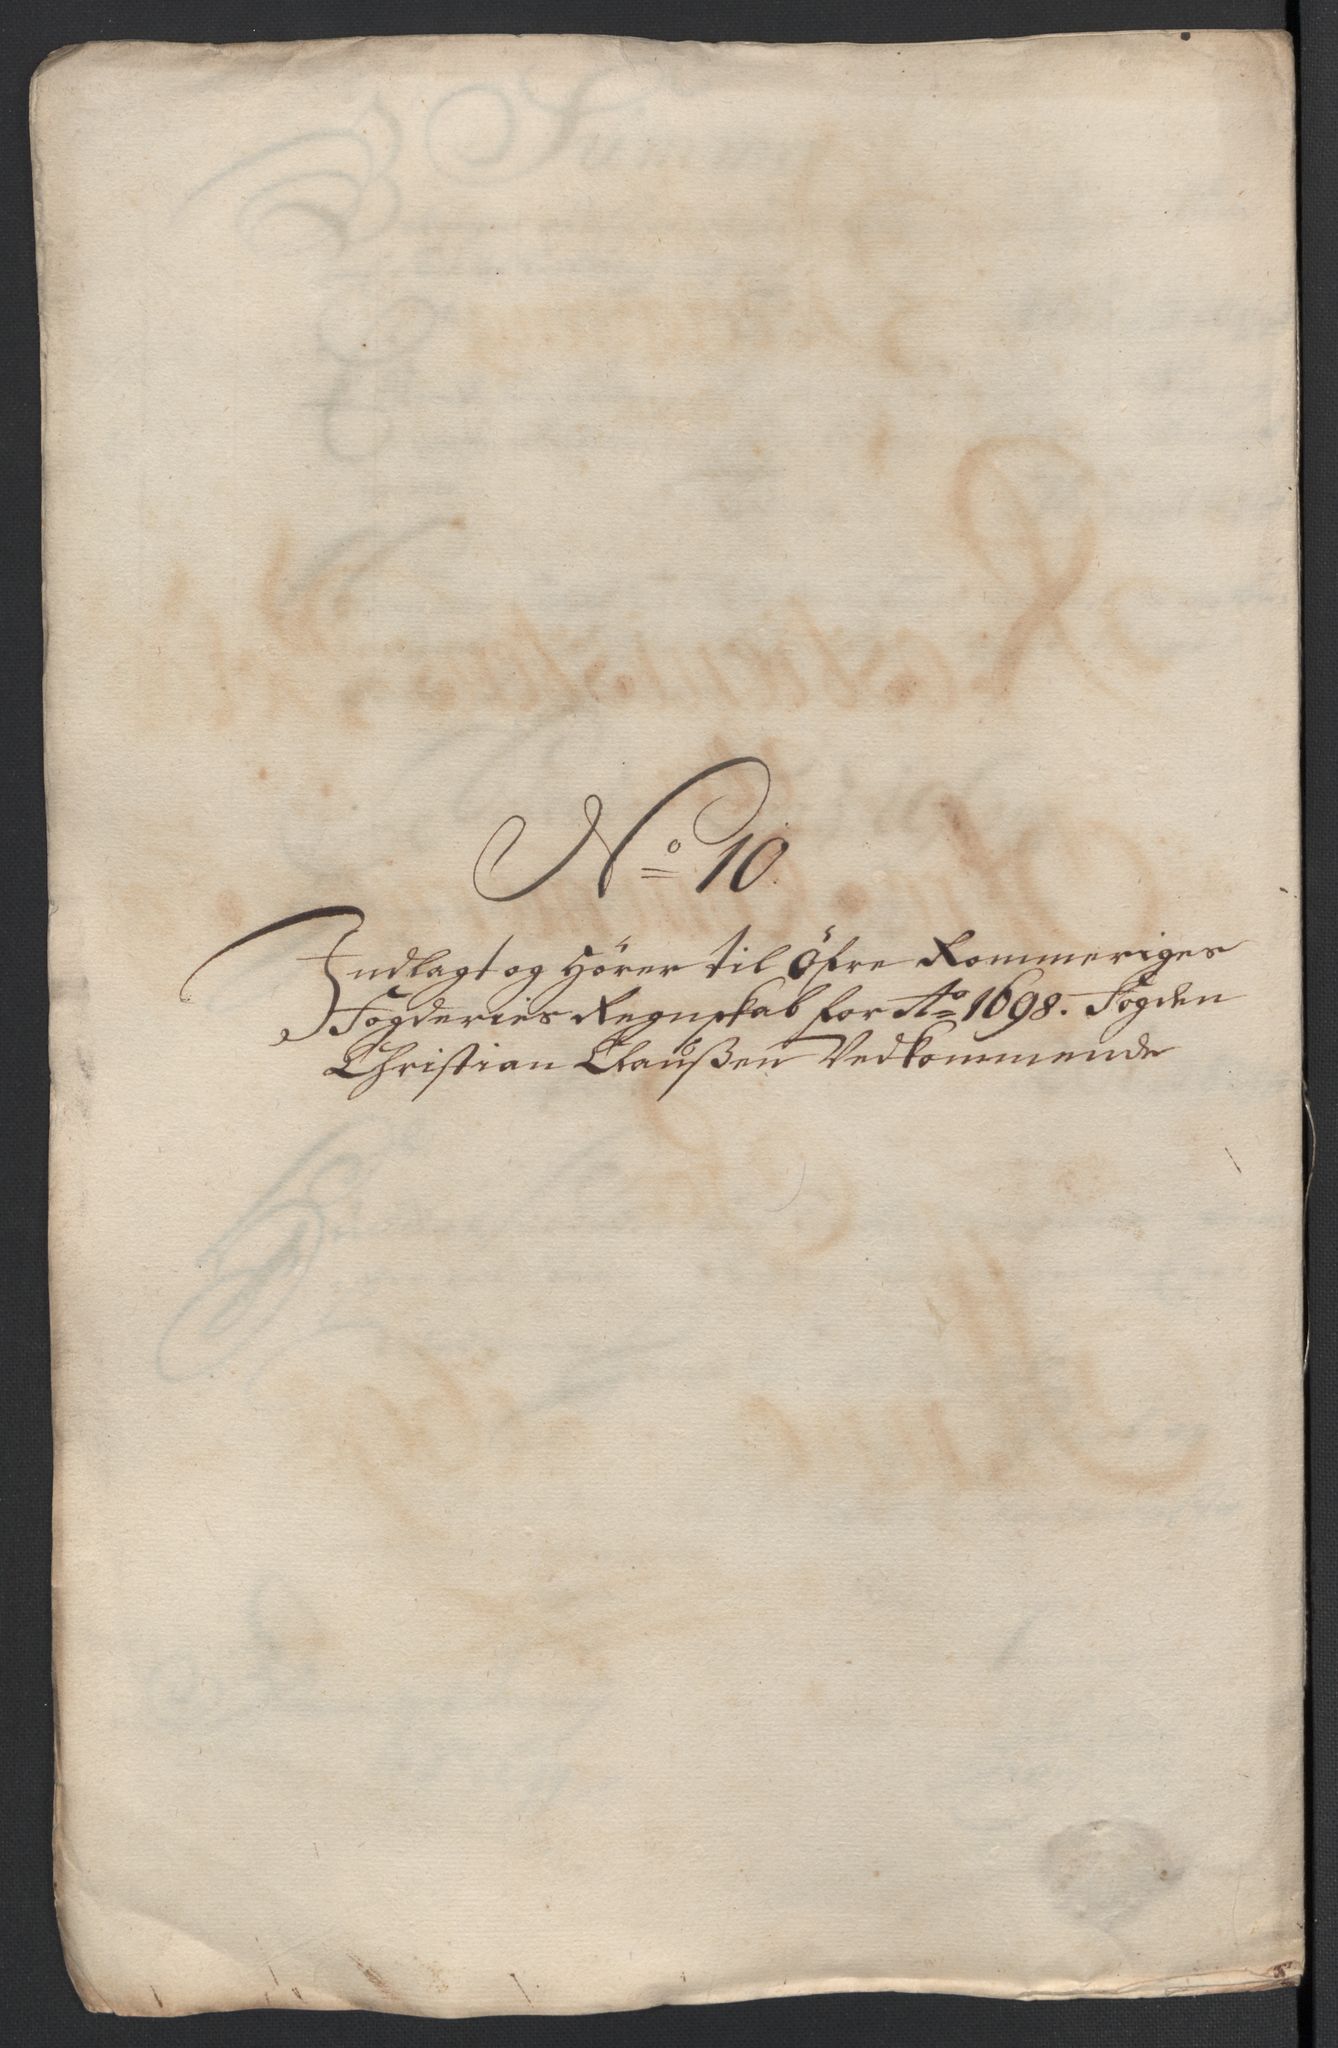 No 10.
Indlagt og Hører til Öfre Rommeriges
Fogderies Regnskab for Ao 1698. Fogden
Christian Claußen Vedkommende